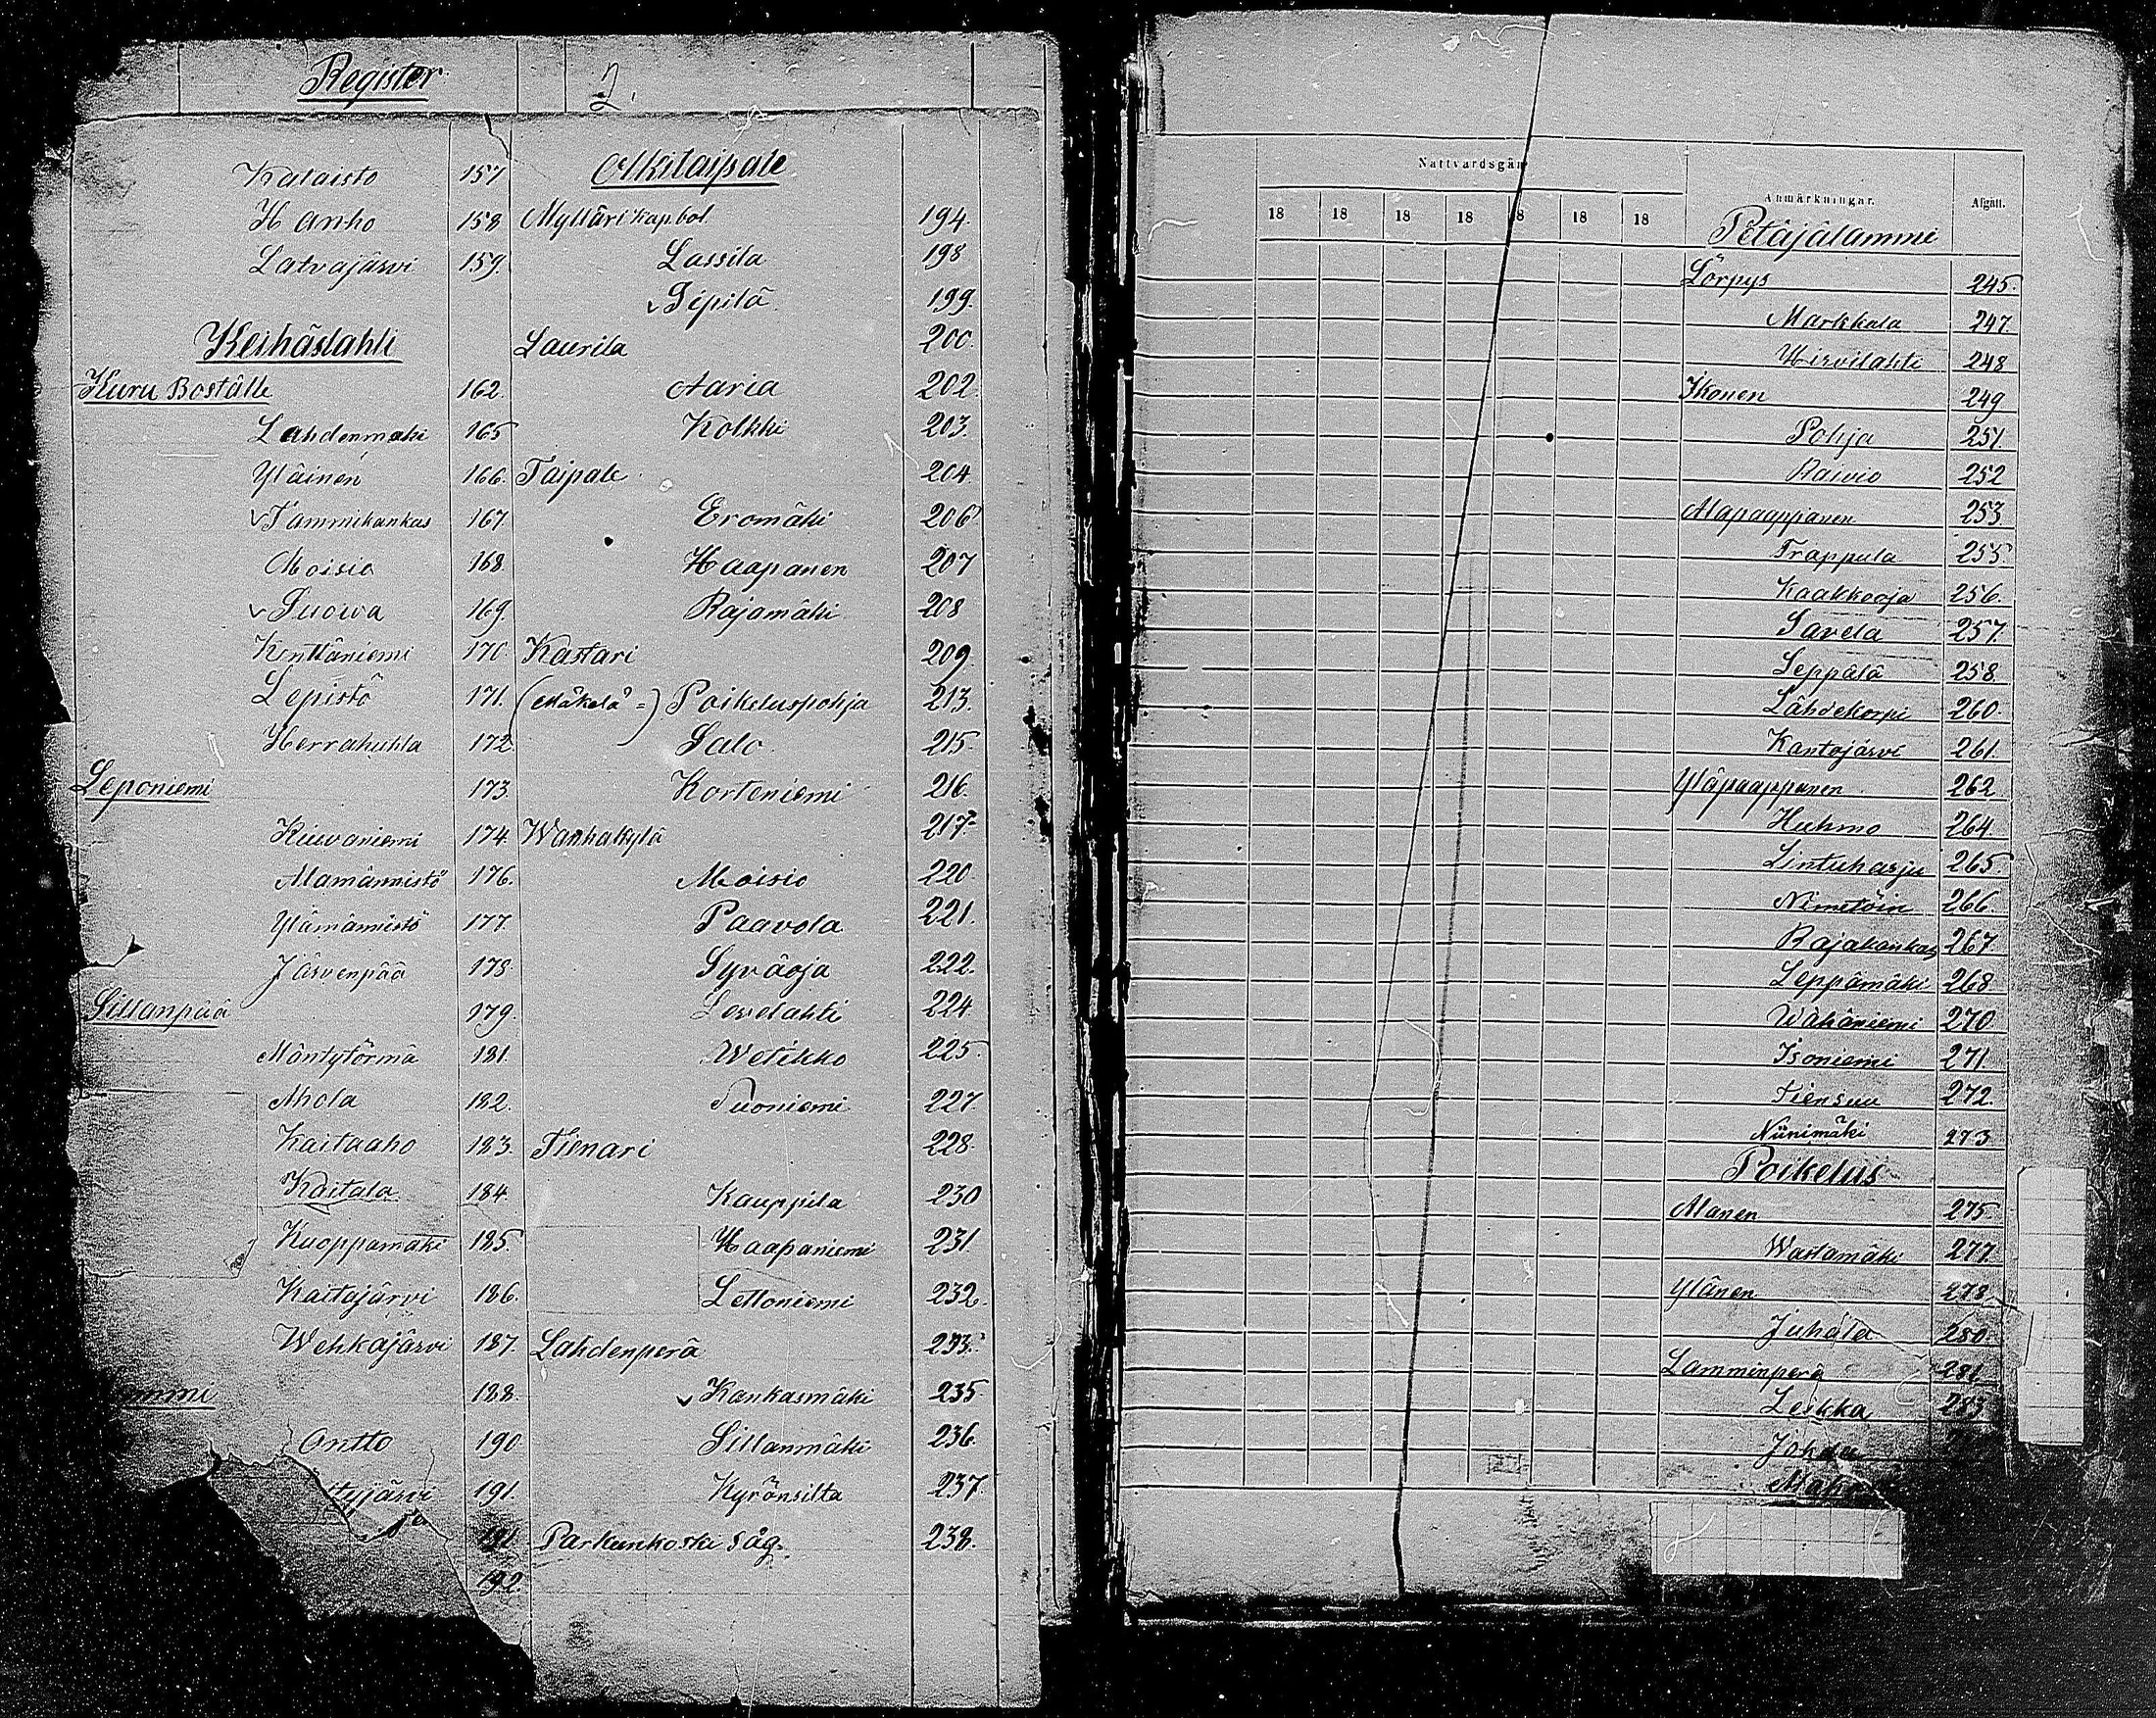 Register
2.
Kalaisto 157
Hanho 158
Latvajärvi 159.
Keihäslahti
Kuru Boställe 162.
Lahdenmäki 165
Yläinen 166.
Tammikankas 167.
Moisio 168.
Suowa 169.
Kenttäniemi 170
Lepistö 171.
Herrakuhla 172
Leponiemi 173.
Kiuvaniemi 174.
Alamännistö 176.
Ylämännistö 177.
Järvenpää 178.
Sillanpää 179.
Mäntytörmä 181.
Ahola 182.
Kaitaaho 183.
Kaitala 184
Kuoppamäki 185.
Kaitajärvi 186.
Wehkajärvi 187.
188.
Ontto 190
191.
191
192.
Olkitaipale
Mylläri kap.bol 194.
Lassila 198
Sipilä 199.
Laurila 200.
Aaria 202.
Kolkki 203.
Taipale 204.
Eromäki 206
Haapanen 207
Rajamäki 208
Kastari 209.
(Mäkelä =) Poikeluspohja 213.
Salo 215.
Korteniemi 216.
Wanhakylä 217.
Moisio 220
Paavola 221.
Syväoja 222.
Lovelahti 224.
Wetikko 225.
Tuoniemi 227.
Tienari 228.
Kauppila 230
Haapaniemi 231.
Lettoniemi 232.
Lahdenperä 233.
Kankasmäki 235.
Sillanmäki 236.
Kyrönsilta 237.
Parkunkoski såg. 238.
Nattvardsgån
18 18 18 18 8 18 18
Anmärkningar. Afgått.
Petäjälammi
Lörpys 245.
Markkala 247.
Hirvilahti 248
Ikonen 249
Pohja 251.
Raivio 252
Alapaappanen 253.
Trappula 255.
Kaakkooja 256.
Savela 257.
Seppälä 258.
Lähdekorpi 260.
Kantojärvi 261.
Yläpaappanen 262
Huhmo 264.
Lintuharju 265.
Nimetöin 266.
Rajakankas 267
Leppämäki 268
Wähäniemi 270
Isoniemi 271.
Tiensuu 272.
Niinimäki 273
Poikelus
Alanen 275
Wastamäki 277.
Ylänen 278
Juhala 280.
Lamminperä 281
Leikka 283
Johda